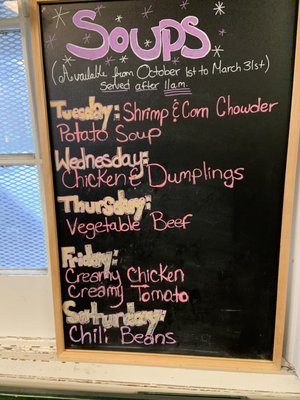 Soups
(Available from October 1st to March 31st)
Served after 11am.
Tuesday: Shrimp & Corn Chowder
Potato Soup
Wednesday:
Chicken & Dumplings
Thursday:
Vegetable Beef
Friday:
Creamy Chicken
Creamy Tomato
Saturday:
Chili Beans